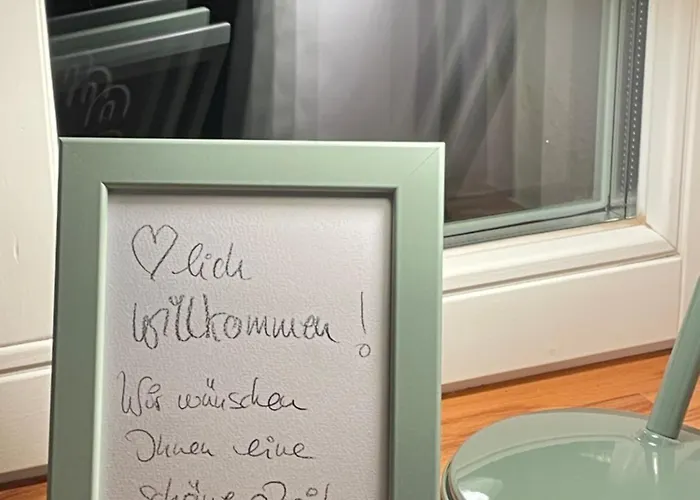 ♡lich
willkommen!
Wir wünschen
Ihnen eine
schöne Zeit